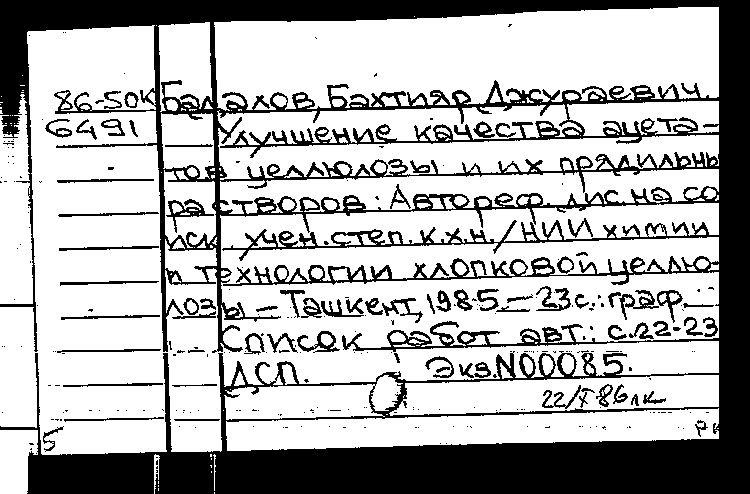 86-50к Балалов, Бахтияр Джураевич.
6491 Улучшение качества ацета-
тов целлюлозы и их прядильны
растворов: Автореф. дис. на со
иск. учен. степ. к.х.н. / НИИ химии
и технологии хлопковой целлю-
лозы – Ташкент, 1985. – 23 с.: граф.
Список работ авт.: с.22-23
ДСП. Экз.N00085.
22/X 86 лк
5